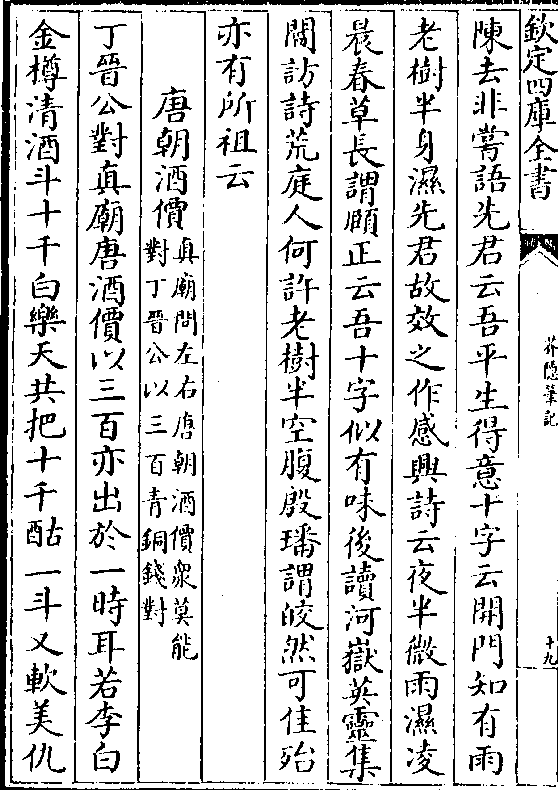 欽定四庫全書
芥隱筆記
十九
陳去非嘗語先君云吾平生得意十字云開門知有雨
老樹半身濕先君故效之作感興詩云夜半微雨濕凌
晨春草長謂頤正云吾十字似有味後讀河嶽英靈集
閻訪詩荒庭人何許老樹半空腹殷璠謂皎然可佳殆
亦有所祖云
唐朝酒價真廟問左右唐朝酒價衆莫能
對丁晉公以三百青銅錢對
丁晉公對真廟唐酒價以三百亦出於一時耳若李白
金樽清酒斗十千白樂天共把十千酤一斗又軟美仇